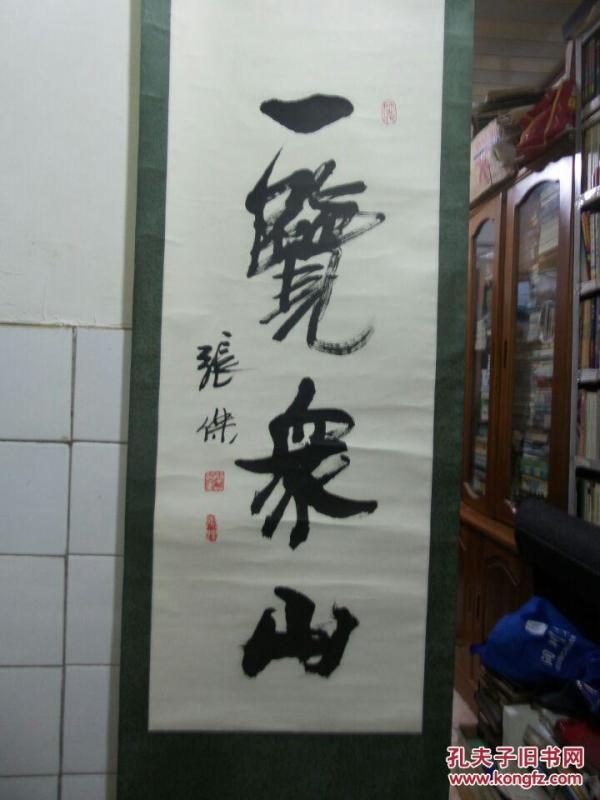 一覽眾山
張傑
孔夫子旧书网
www.kongfz.com